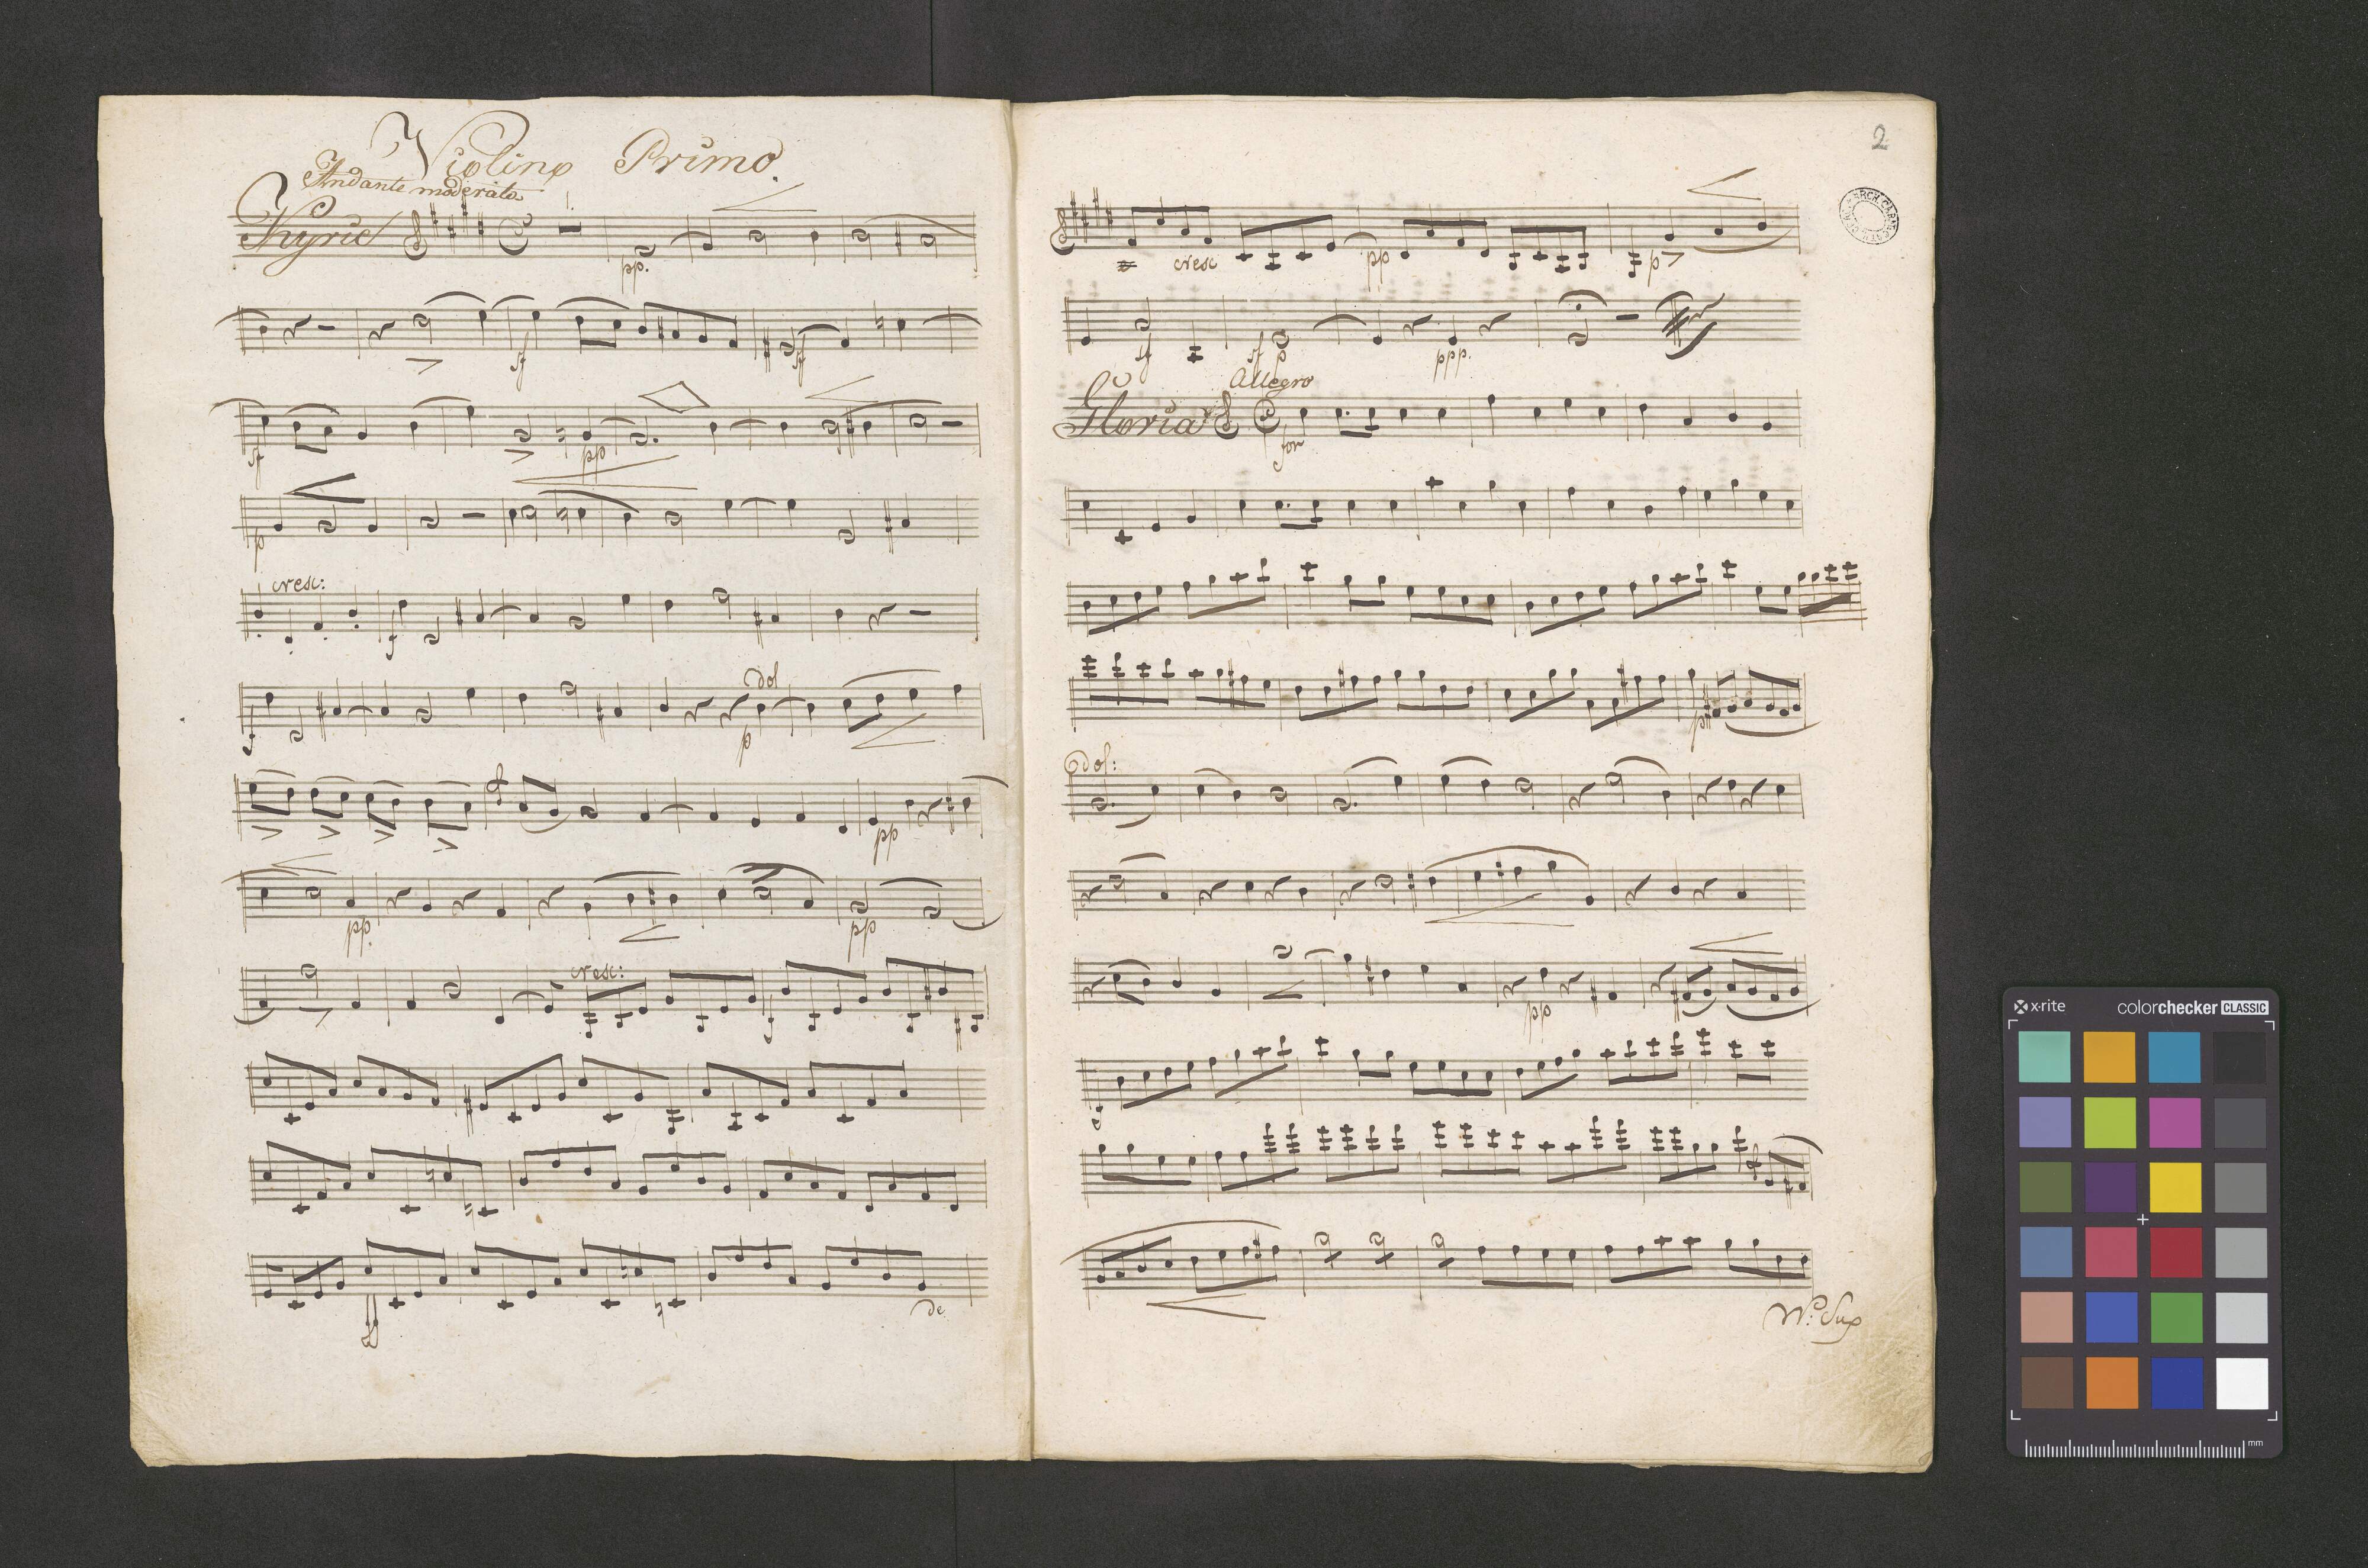 Violino Primo.
Andante moderato
Kyrie
1.
pp.
sf
sf
sf
pp
p
cresc:
f
f
dol
p
pp
pp.
pp
cresc:
f
de
2
cresc
pp
p
sf
sf p
ppp.
Allegro
Gloria
for
p
dol:
pp
f
V: Sub
x·rite
colorchecker CLASSIC
mm